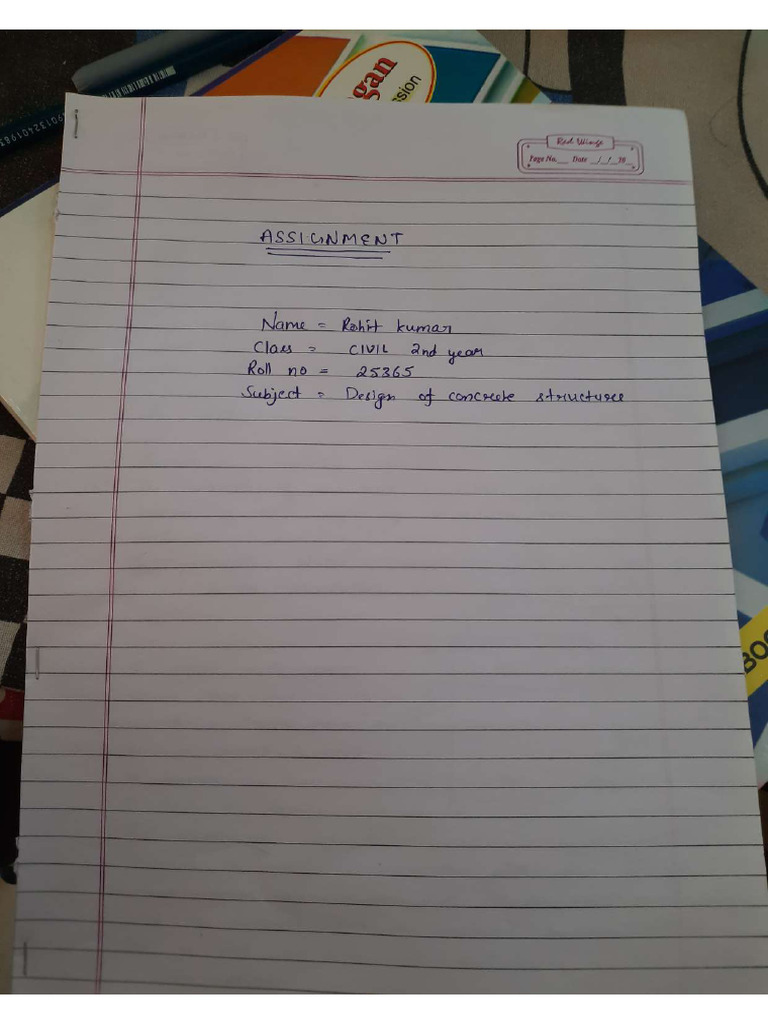 gan
ssion
9013240198
Red Wings
Page No. Date / / 20
ASSIGNMENT
Name = Rohit kumar
Class = CIVIL 2nd year
Roll no = 25365
Subject = Design of concrete structures
BOO